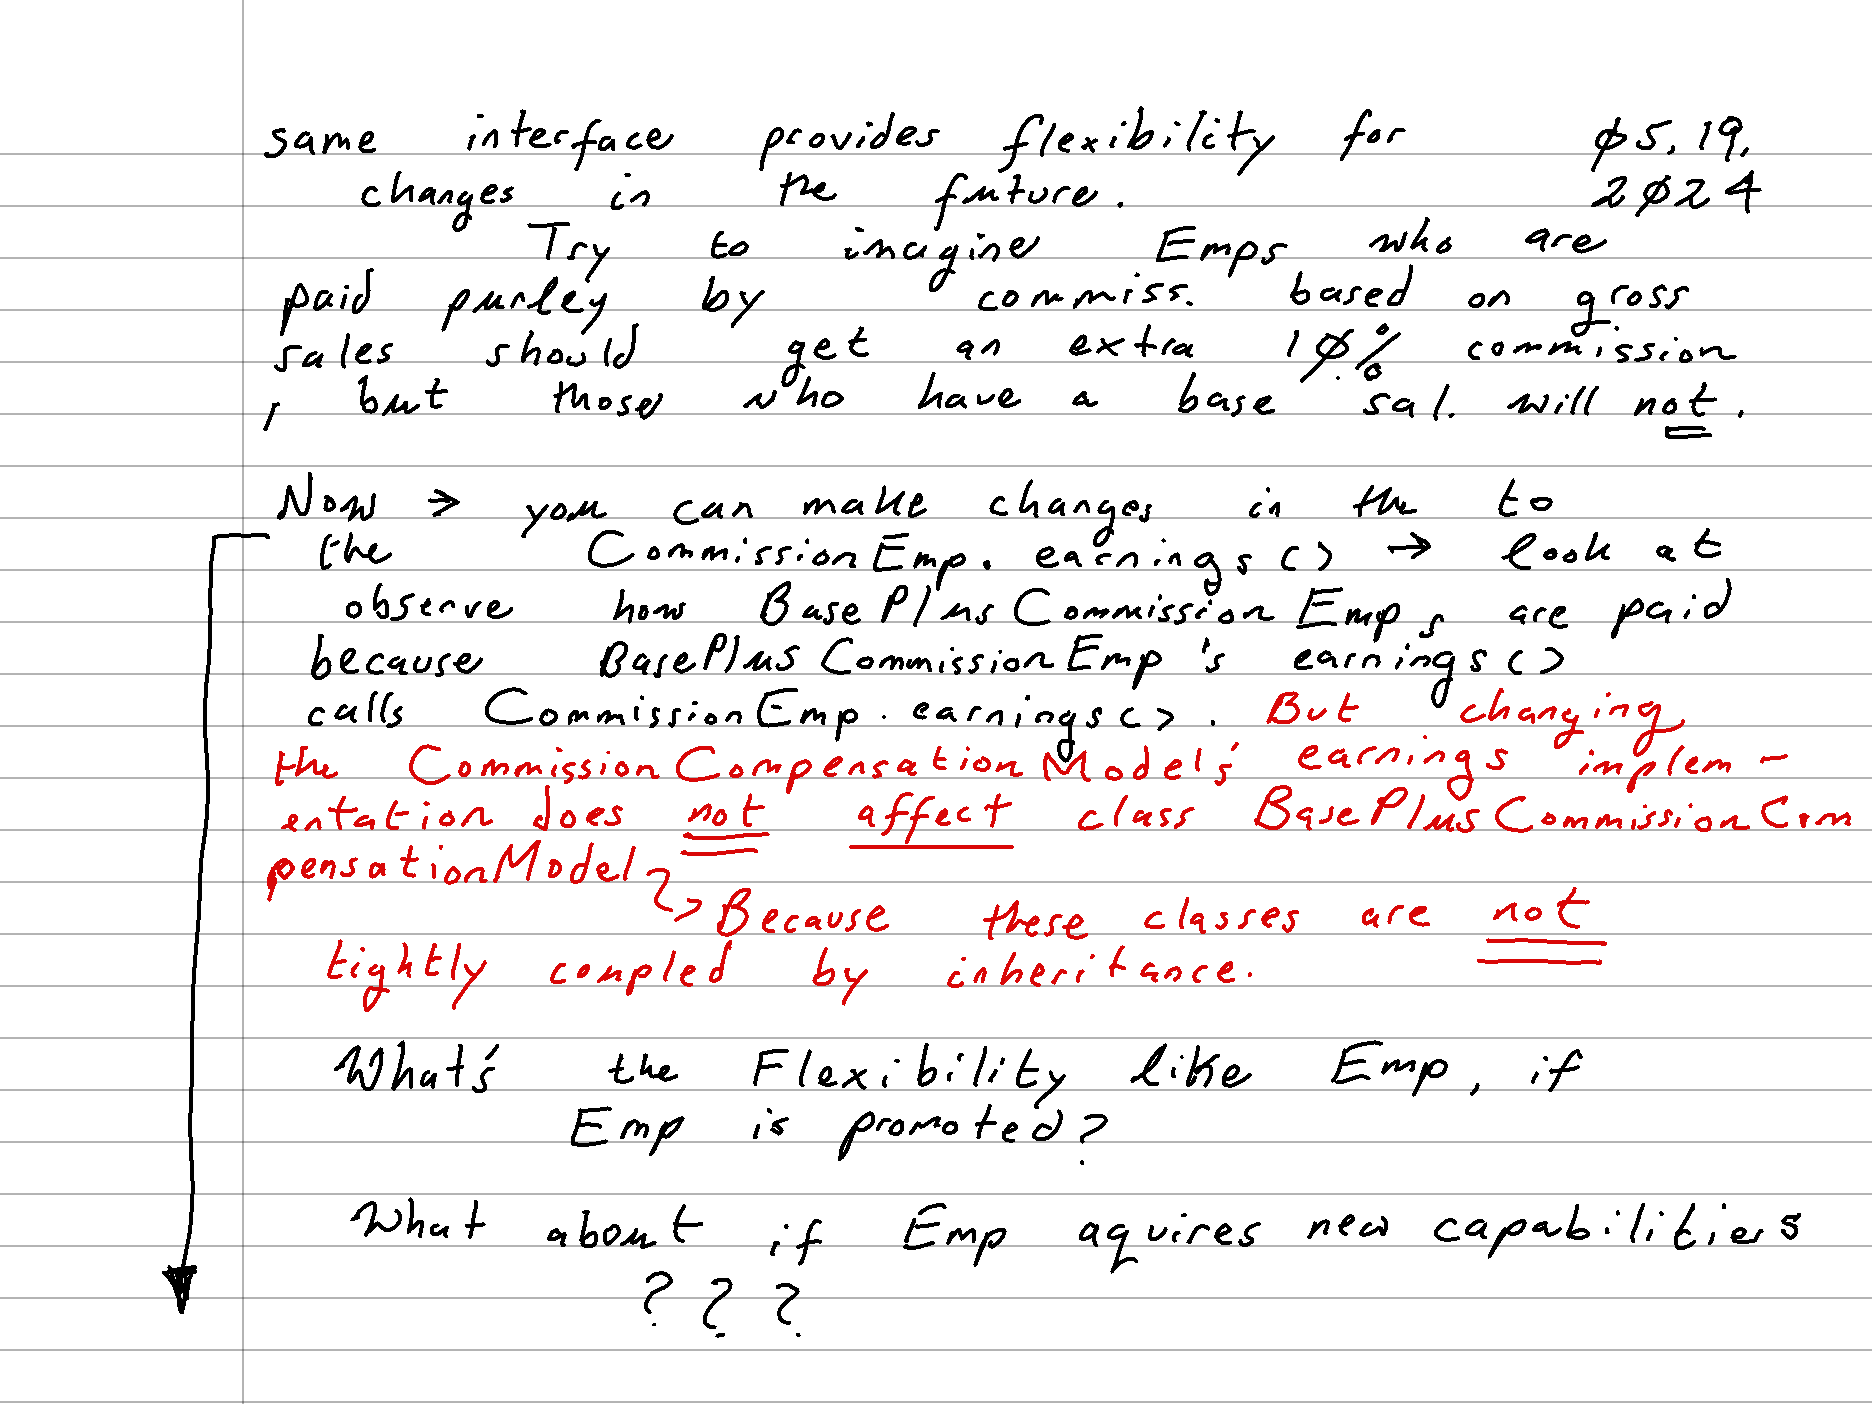 same interface provides flexibility for ø5.19.
changes in the future. 2ø24
Try to imagine Emps who are
paid purley by commiss. based on gross
sales should get an extra 1ø% commission
, but those who have a base sal. will not.
Now → you can make changes in the to
the CommissionEmp.earnings() → look at
observe how BasePlusCommissionEmps are paid
because BasePlusCommissionEmp's earnings()
calls CommissionEmp.earnings(). But changing
the CommissionCompensationModel's earnings implem-
entation does not affect class BasePlusCommissionCom
pensationModel
Because these classes are not
tightly coupled by inheritance.
What's the Flexibility like Emp, if
Emp is promoted?
What about if Emp aquires new capabilities
? ? ?